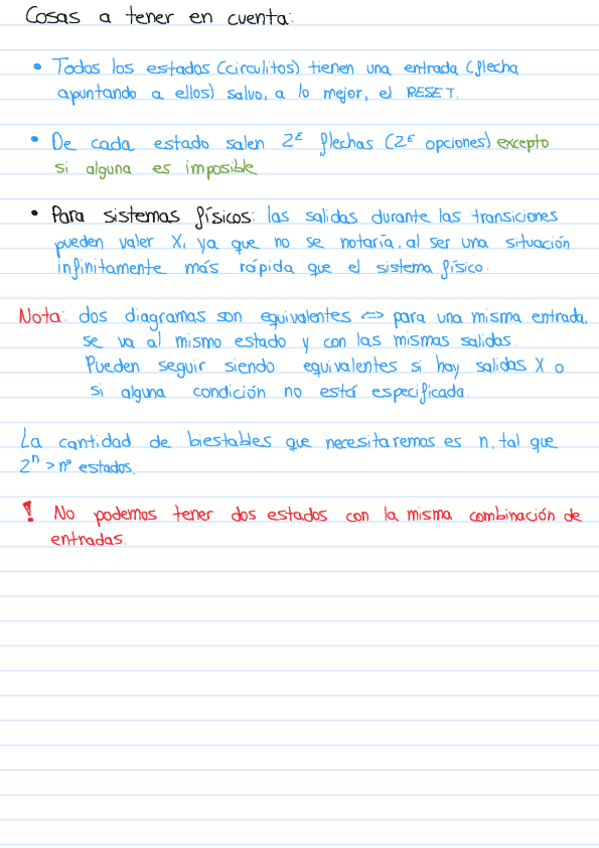 Cosas a tener en cuenta:
• Todos los estados (circulitos) tienen una entrada (flecha
apuntando a ellos) salvo, a lo mejor, el RESET.
• De cada estado salen 2^E flechas (2^E opciones) excepto
si alguna es imposible
• Para sistemas físicos: las salidas durante las transiciones
pueden valer X, ya que no se notaría, al ser una situación
infinitamente más rápida que el sistema físico.
Nota: dos diagramas son equivalentes <=> para una misma entrada,
se va al mismo estado y con las mismas salidas.
Pueden seguir siendo equivalentes si hay salidas X o
si alguna condición no está especificada.
La cantidad de biestables que necesitaremos es n, tal que
2^n > nº estados.
! No podemos tener dos estados con la misma combinación de
entradas.